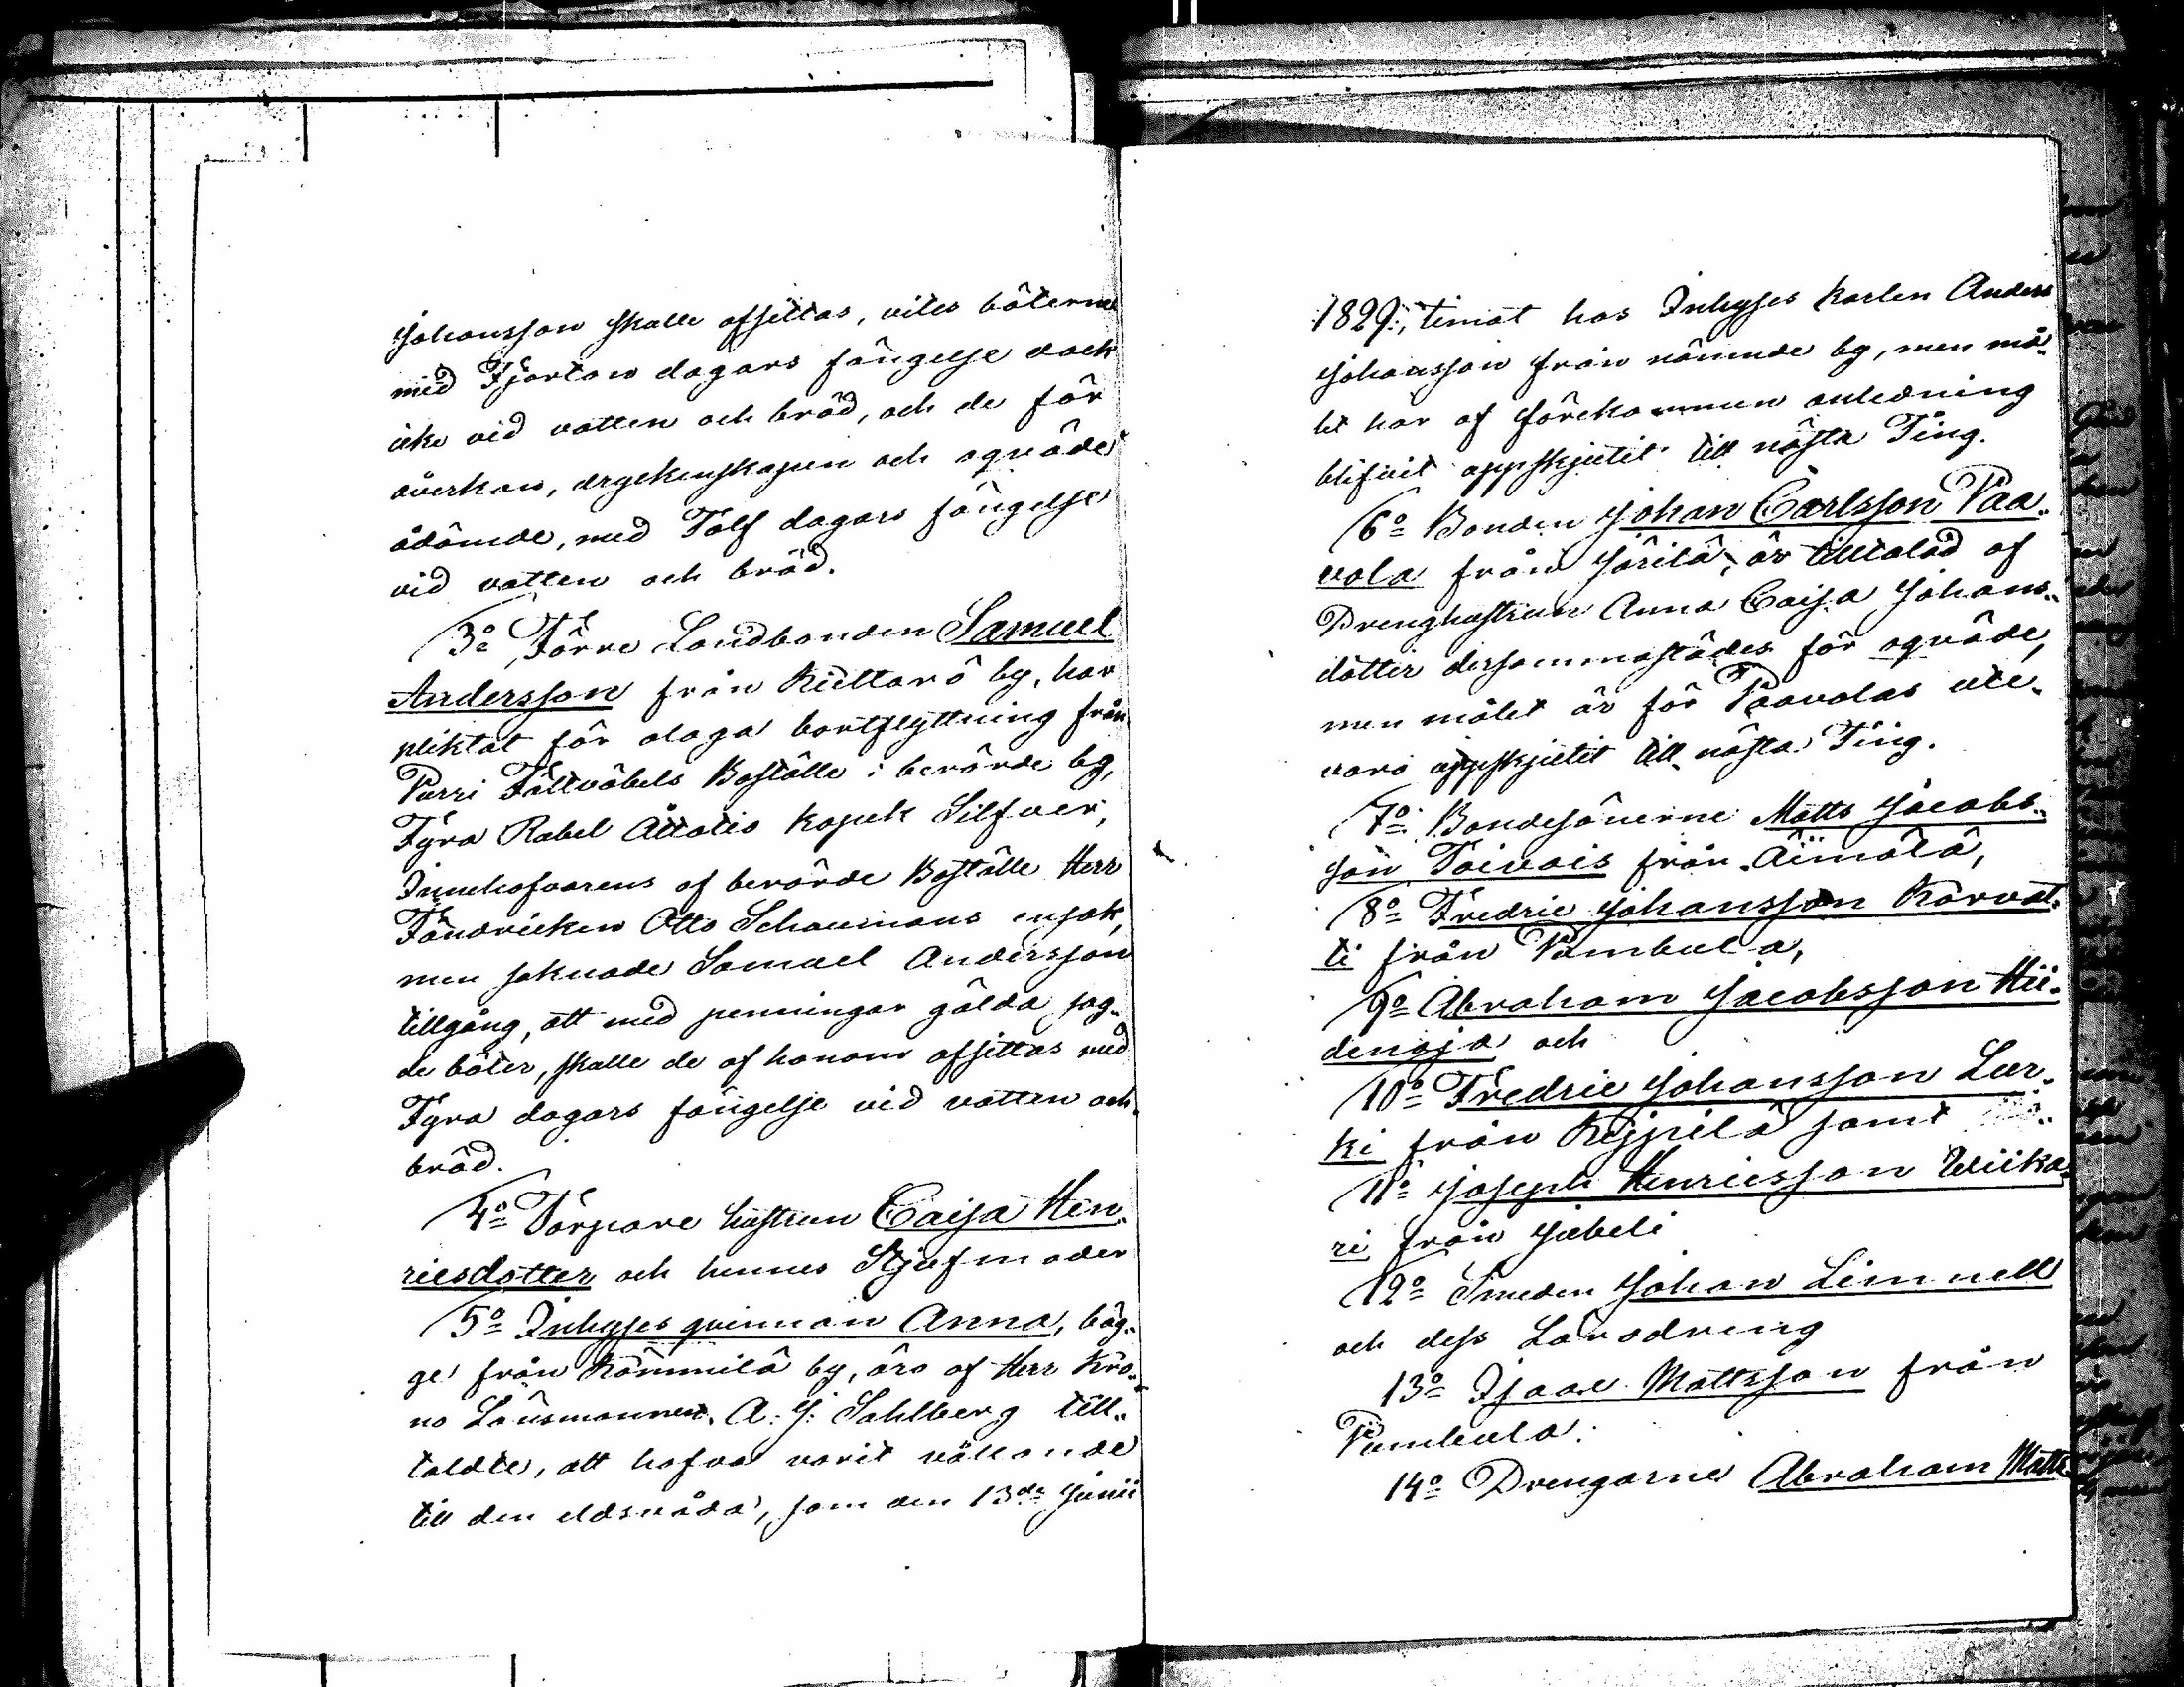 Johansson skulle afsittas, vites böterne
med Fjorton dagars fängelse dock
icke vid vatten och bröd, och de för
åverkan, dryckenskapen och oqväde
ådömde, med Tolf dagars fängelse
vid vatten och bröd.
3o Förre Landbonden Samuel
Andersson från Kuttarö by, har
pliktat för olaga bortflyttning från
Purri Fältväbels Boställe i berörde by,
Fyra Rubel Åttatio kopek Silfver,
Innehafvarens af berörde Boställe Herr
Fändricken Otto Schaumans ensak,
men saknade Samuel Andersson
tillgång, att med penningar gälda sag-
de böter, skulle de af honom afsittas med
Fyra dagars fängelse vid vatten och
bröd.
4o Torpare hustrun Caisa Hen-
ricsdotter och hennes Stjufmoder
5o Inhyses qvinnan Anna, bäg-
ge från Kömmilä by, äro af Herr Kro-
no Länsmannen A: J: Sahlberg till-
taldte, att hafva varit vållande
till den eldsvåda, som den 13de Junii
1829, timat hos Inhyses karlen Anders
Johansson från nämnde by, men må-
let har af förekommen anledning
blifvit uppskjutit till nästa Ting.
6o Bonden Johan Carlsson Paa-
vola från Järilä, är tilltalad af
Drenghustrun Anna Caisa Johans-
dotter dersammastädes för oqväde,
men målet är för Paavolas ute-
varo uppskjutit till nästa Ting.
7o Bondesönerne Matts Jacobs-
son Toivois från Äimälä,
8o Fredric Johansson Karvat-
ti från Pambula,
9o Abraham Jacobsson Hii-
denoja och
10o Fredric Johansson Lur-
ki från Kejpilä samt
11o Joseph Henricsson Wiika-
ri från Jubeli
12o Smeden Johan Limnell
och dess Lärodreng
13o Isaac Mattsson från
Pambula.
14o Drengarne Abraham Matts